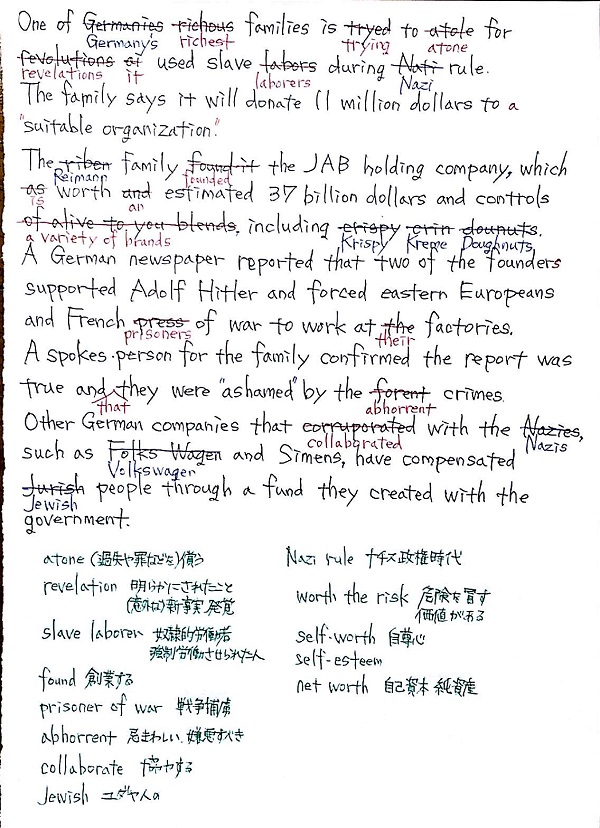 One of Germanies richous families is tryed to atole for
Germany's richest trying atone
revolutions ai used slave labors during Nati rule.
revelations it laborers Nazi
The family says it will donate 11 million dollars to a
"suitable organization."
The riben family found it the JAB holding company, which
Reimann founded
as worth and estimated 37 billion dollars and controls
is an
of alive to you blends, including crispy crin dounuts.
a variety of brands Krispy Kreme Doughnuts,
A German newspaper reported that two of the founders
supported Adolf Hitler and forced eastern Europeans
and French press of war to work at the factories.
prisoners their
A spokes-person for the family confirmed the report was
true and they were "ashamed" by the forent crimes.
that abhorrent
Other German companies that corruporated with the Nazies,
collaborated Nazis
such as Folks Wagen and Simens, have compensated
Volkswagen
Jurish people through a fund they created with the
Jewish
government.
atone (過失や罪などを)償う
revelation 明らかにされたこと
(意外な)新事実、発覚
slave laborer 奴隷的労働者
強制労働させられた人
found 創業する
prisoner of war 戦争捕虜
abhorrent 忌まわしい、嫌悪すべき
collaborate 協力する
Jewish ユダヤ人の
Nazi rule ナチス政権時代
worth the risk 危険を冒す
価値がある
self-worth 自尊心
self-esteem
net worth 自己資本 純資産